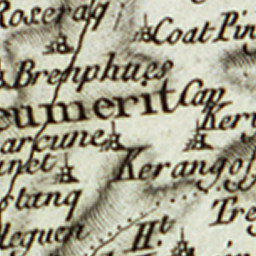 Roseraq
Coat Pin
Brenphues
eumerit Cap
Kerv
arcune
inet
Kerangof
stanq
Tre
lleguen
H.t